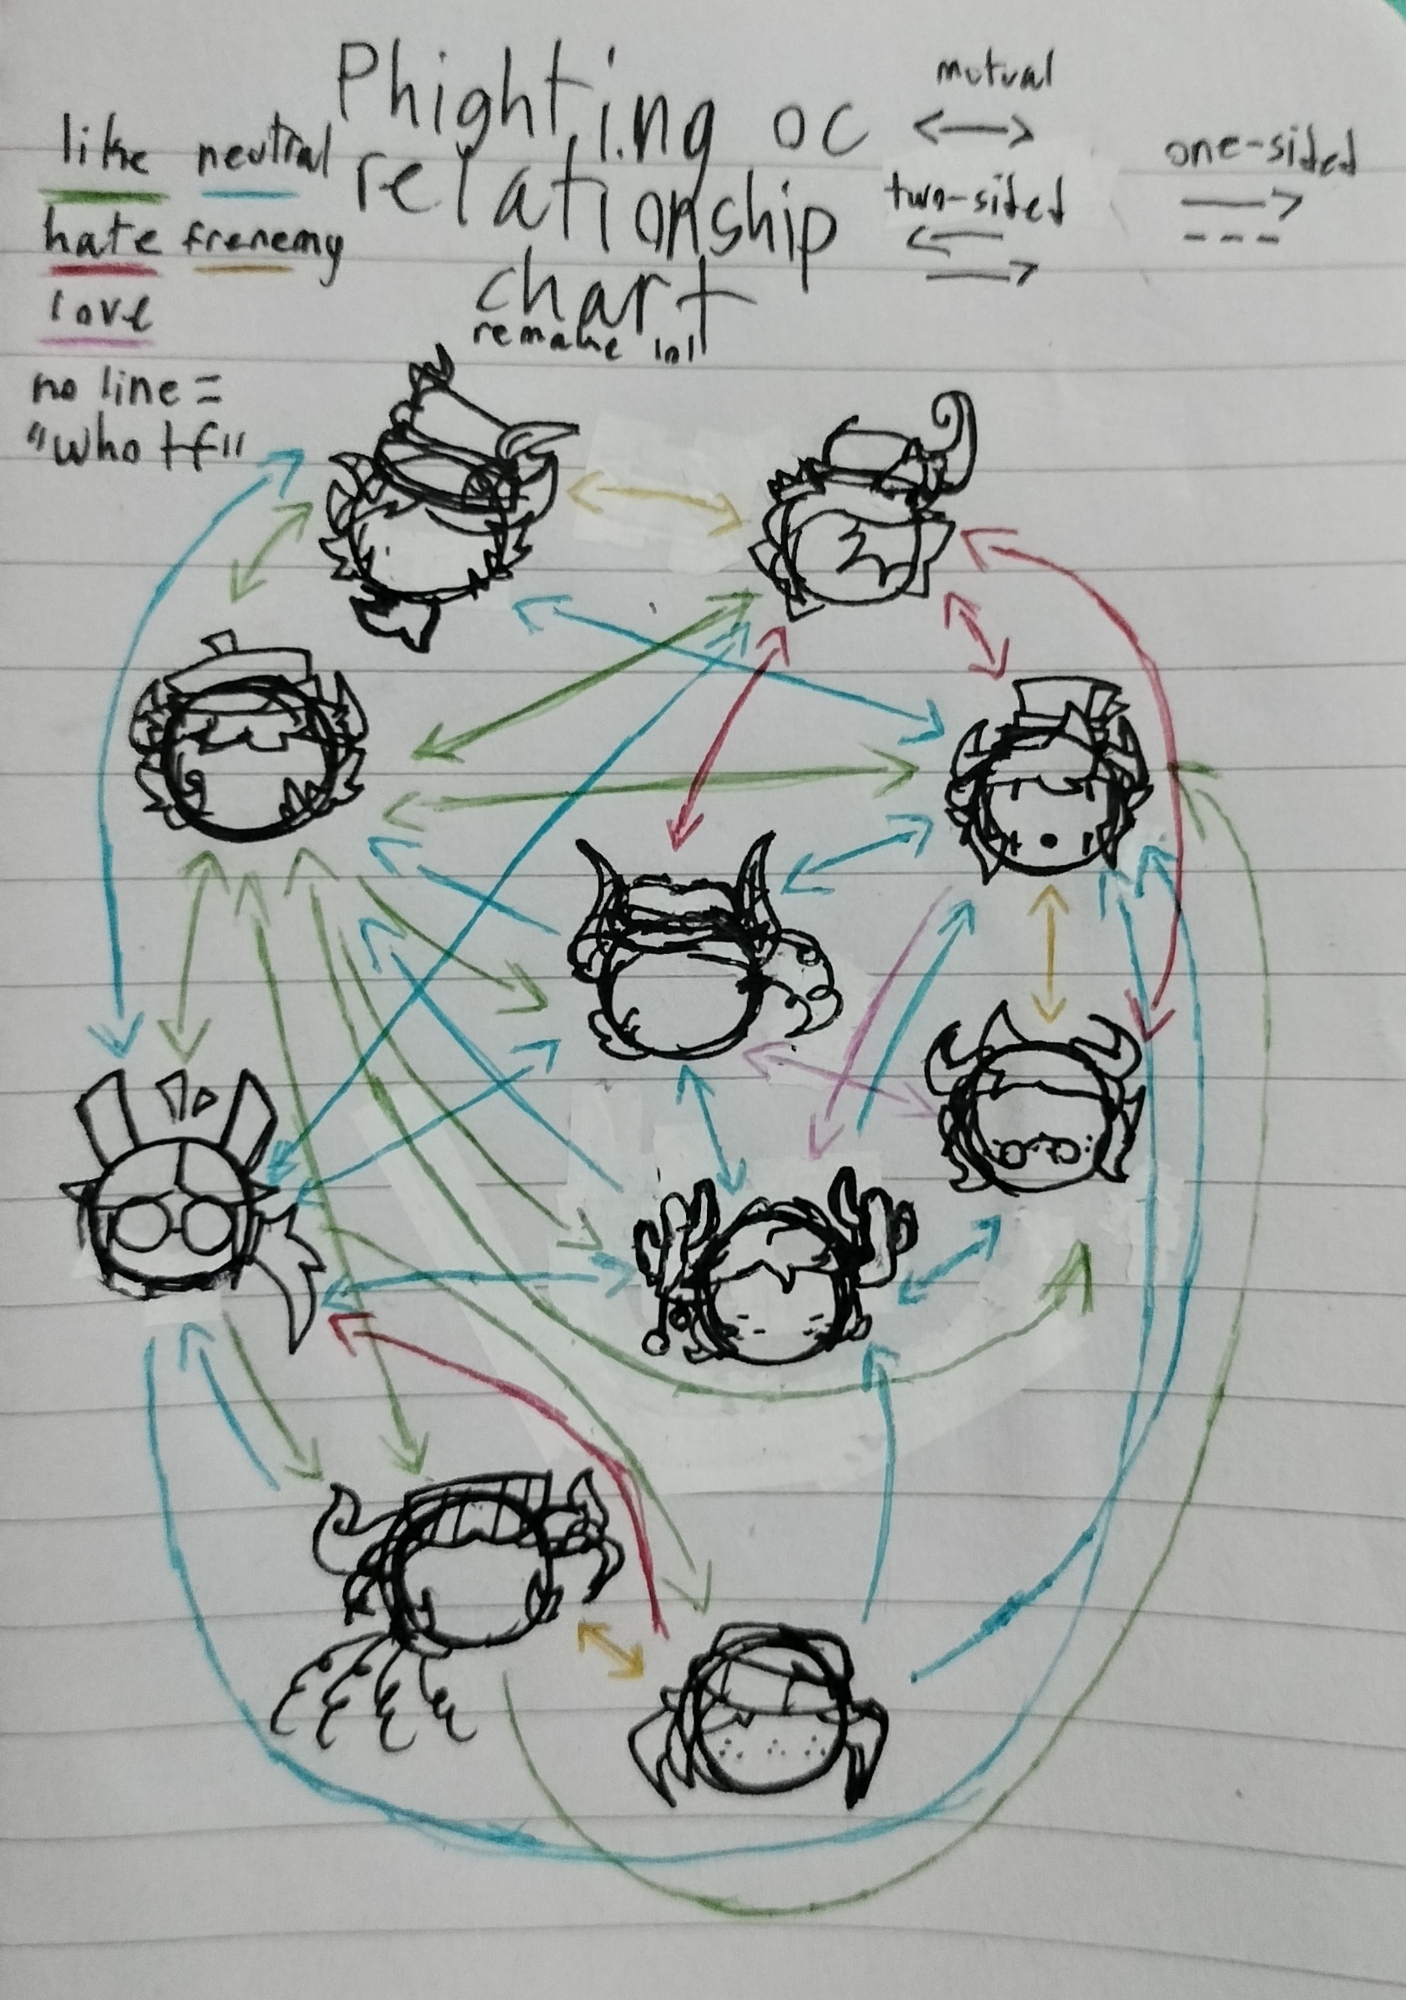 Phighting oc
relationship
chart
remake lol
like neutral
hate frenemy
love
no line =
"who tf"
mutual
two-sided
one-sided